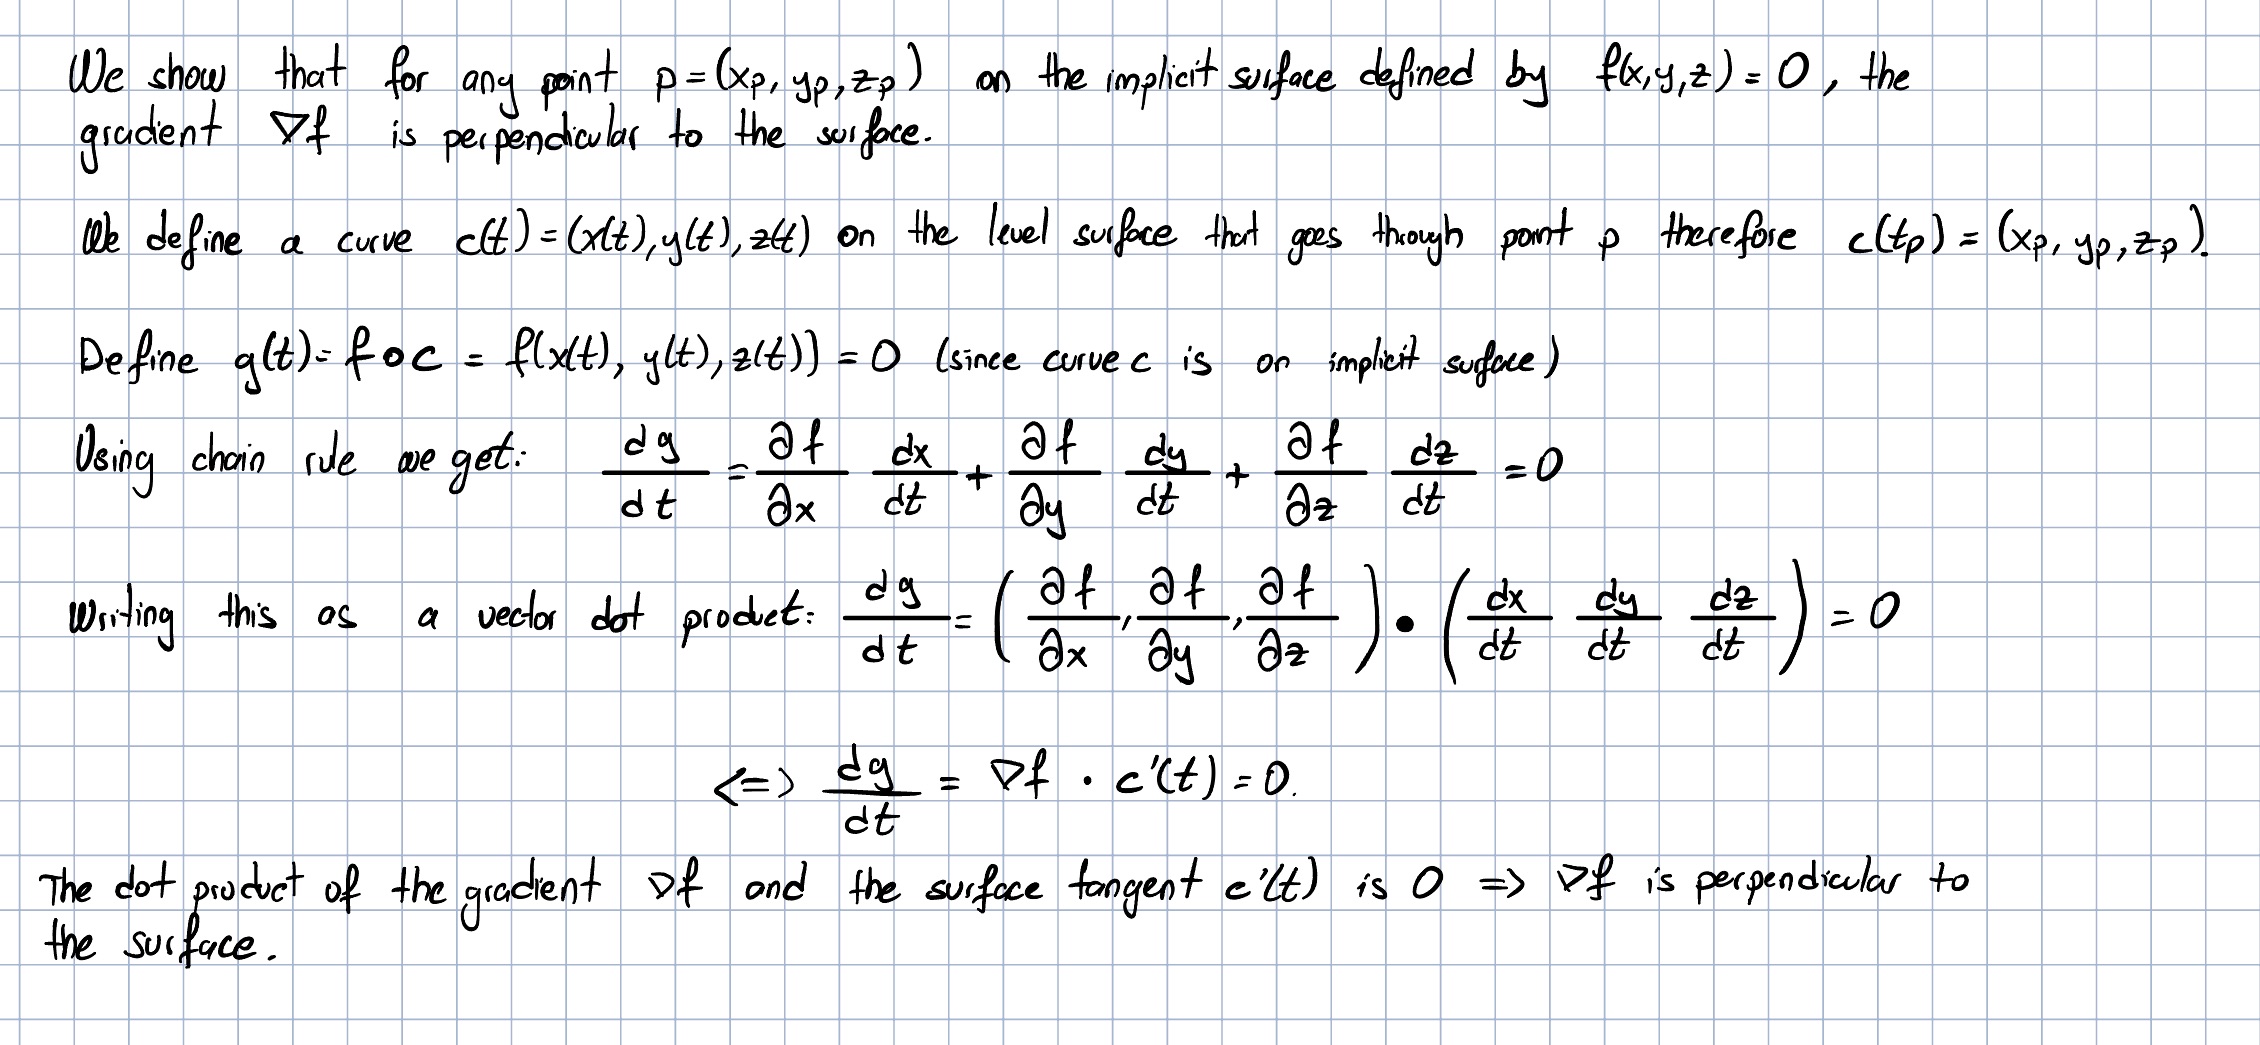 We show that for any point p = (xp, yp, zp) on the implicit surface defined by f(x,y,z) = 0, the
gradient ∇f is perpendicular to the surface.
We define a curve c(t) = (x(t), y(t), z(t)) on the level surface that goes through point p therefore c(tp) = (xp, yp, zp).
Define g(t) = f o c = f(x(t), y(t), z(t)) = 0 (since curve c is on implicit surface)
Using chain rule we get: dg/dt = ∂f/∂x dx/dt + ∂f/∂y dy/dt + ∂f/∂z dz/dt = 0
Writing this as a vector dot product: dg/dt = (∂f/∂x, ∂f/∂y, ∂f/∂z) • (dx/dt dy/dt dz/dt) = 0
<=> dg/dt = ∇f · c'(t) = 0.
The dot product of the gradient ∇f and the surface tangent c'(t) is 0 => ∇f is perpendicular to
the surface.